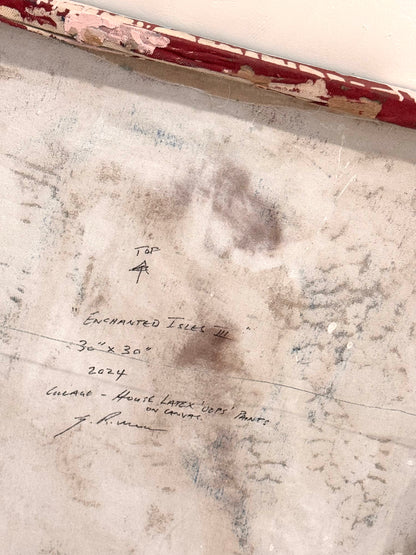 TOP
"ENCHANTED ISLES III"
30" X 30"
2024
COLLAGE - HOUSE LATEX 'OOPS' PAINTS
ON CANVAS.